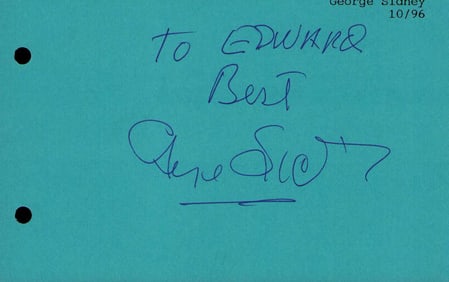 George Sidney
10/96
To EDWARD
Best
George Sidney